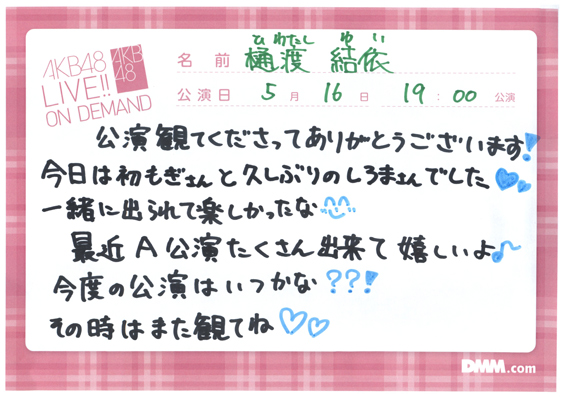 AKB48
LIVE!!
ON DEMAND
AKB
48
ひわたし ゆい
名前 樋渡 結依
公演日 5月 16日 19:00 公演
公演観てくださってありがとうございます!
今日は初もぎさんと久しぶりのしろまさんでした
一緒に出られて楽しかったな
最近A公演たくさん出来て嬉しいよ♪
今度の公演はいつかな??!
その時はまた観てね
DMM.com